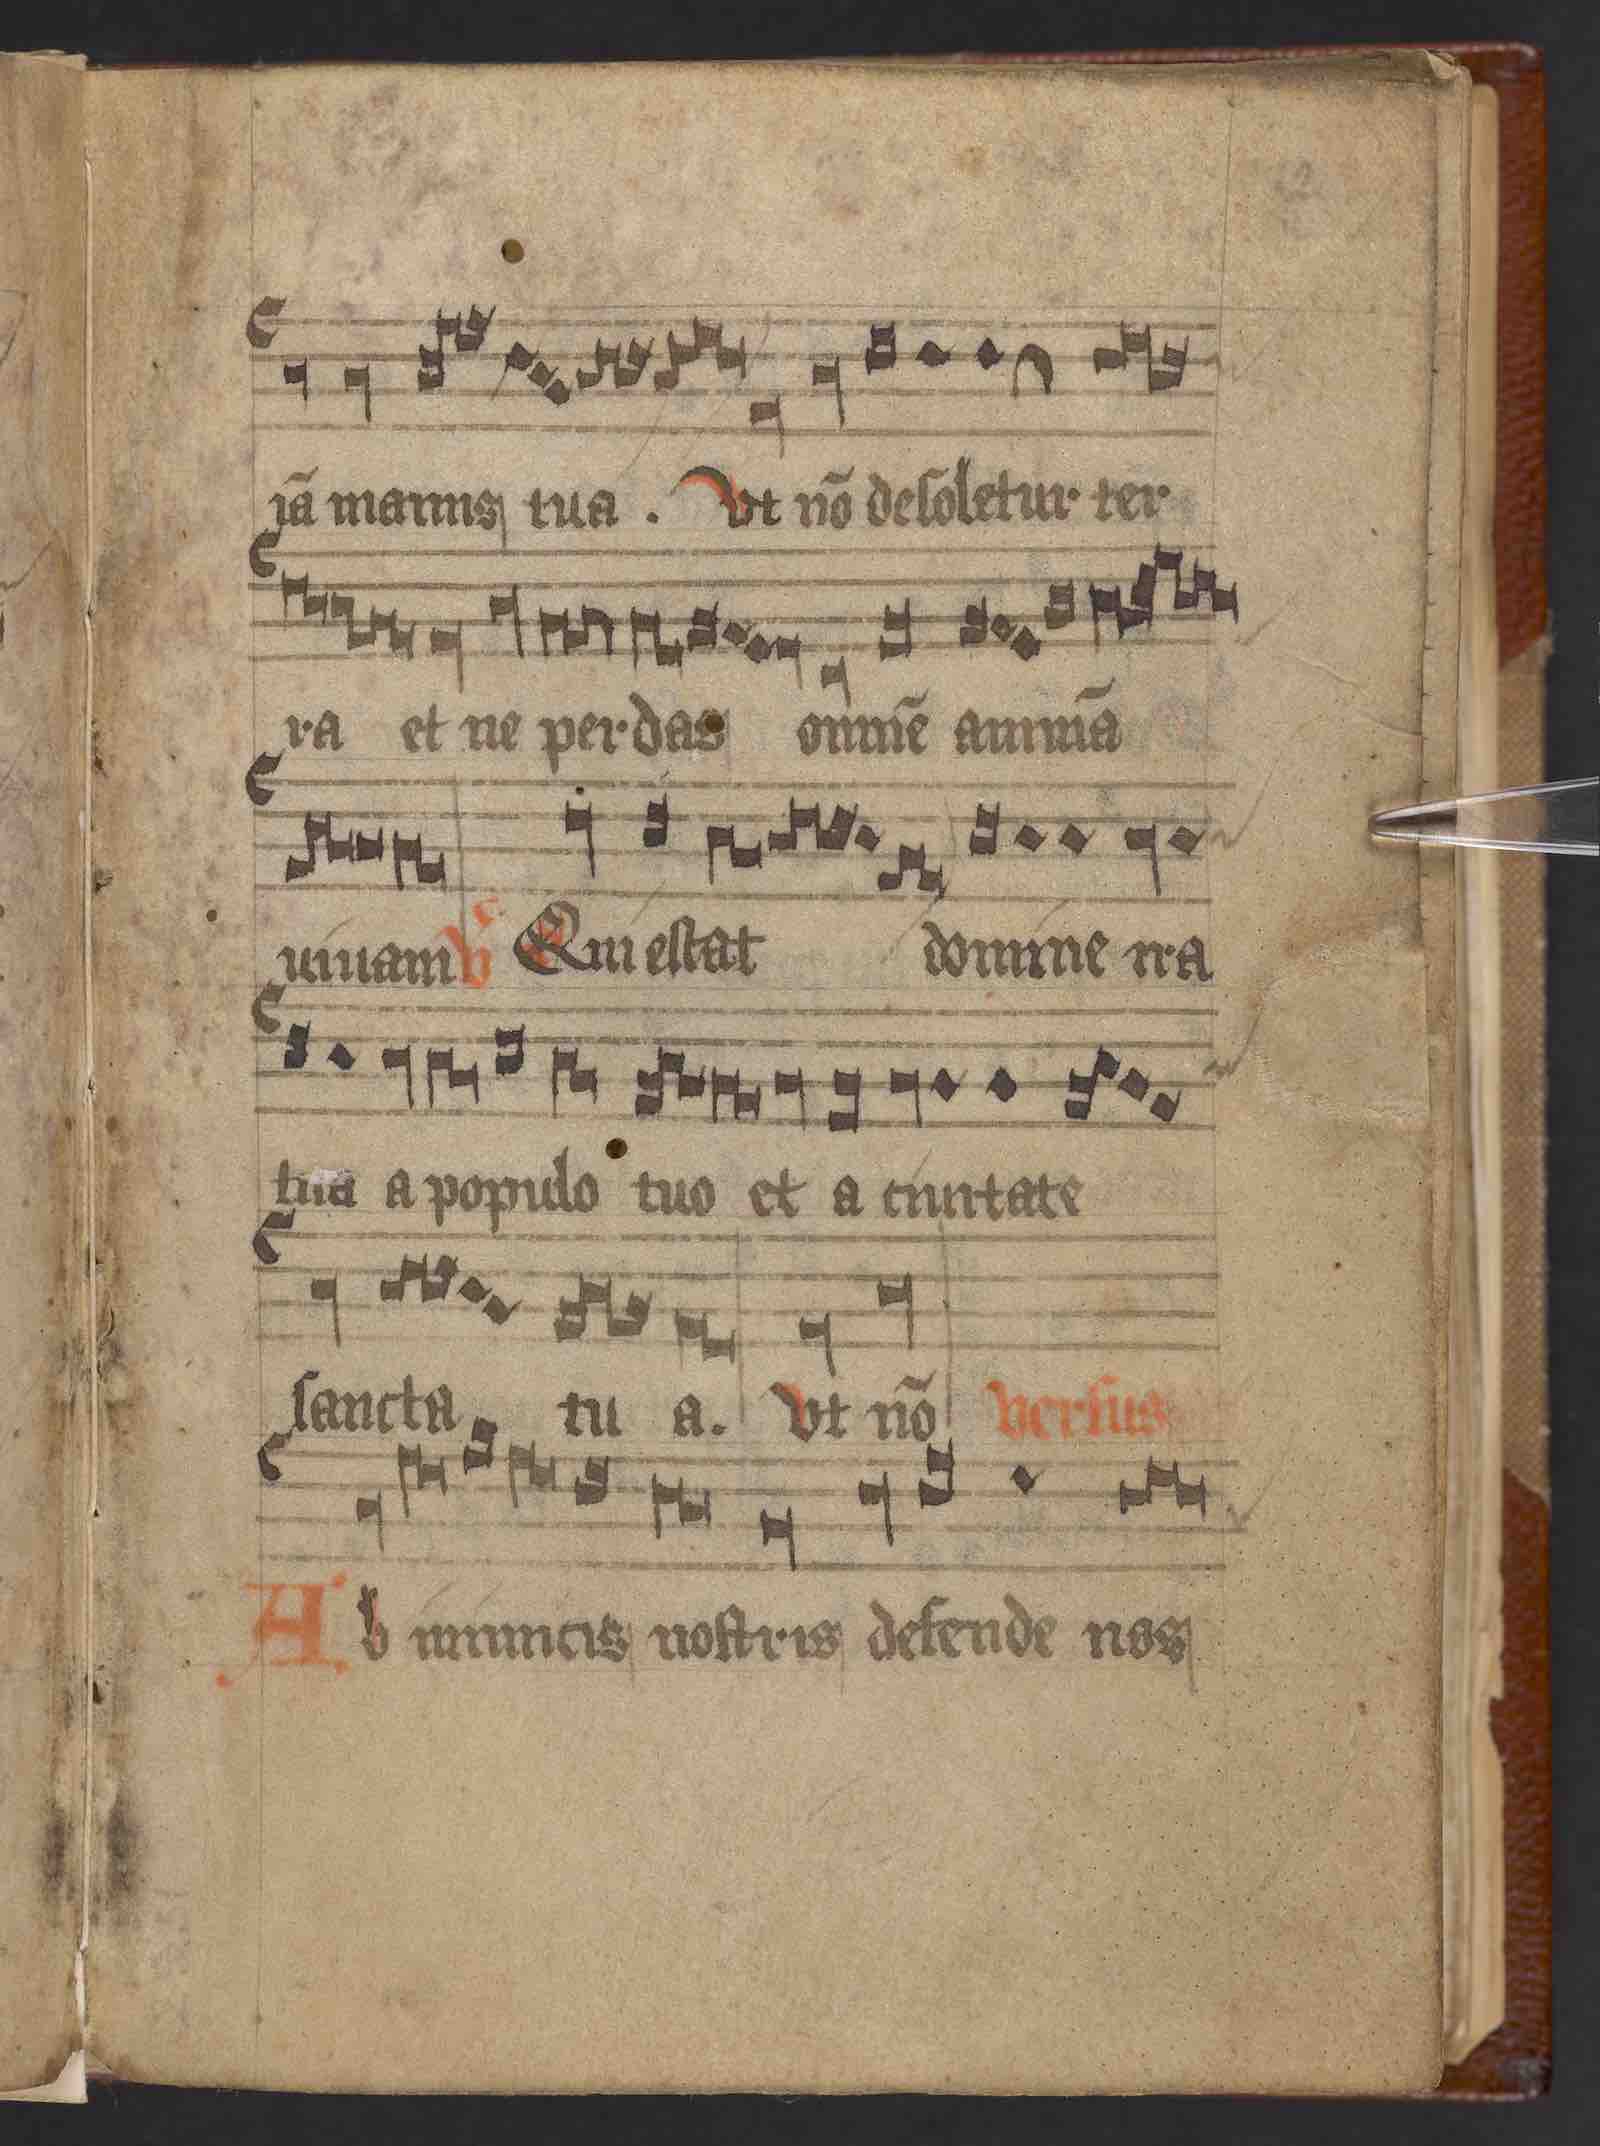 iā manus tua . Vt nō desoletur ter
ra et ne perdas omnē animā
uiuam V Quiestat domine ira
tua a populo tuo et a ciuitate
sancta tu a. Vt nō versus
Ab inimicis nostris defende nos